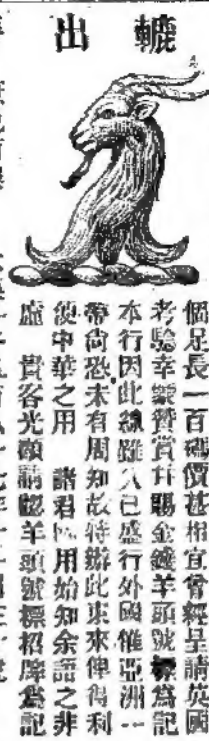 轆出
個足長一百碼價甚相宜曾經呈請英國
考驗幸蒙贊賞并賜金錢羊頭號標爲記
本行因此線雖久已盛行外國惟亞洲一
帶尚恐未有周知故特辦此東來俾得利
便中華之用 諸君 用始知余語之非
虛 貴客光顧請認羊頭號標招牌爲記